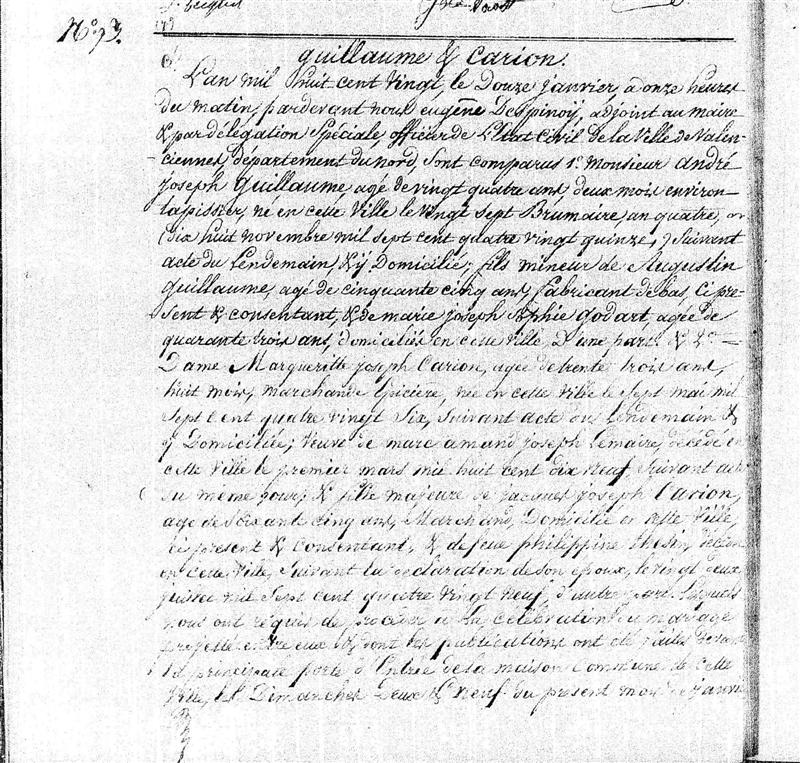 N.° 13.
Guillaume & Carion.
L'an mil huit cent vingt, le Douze janvier, à onze heures
du matin, pardevant nous eugène Despinoy, adjoint au maire
& par délégation Spéciale, officier de L'Etat Civil de la Ville de Valen-
-ciennes, département du nord, sont comparus 1.° monsieur andré
joseph Guillaume, agé de vingt quatre ans, deux mois environ
tapissier, né en cette Ville le vingt sept Brumaire an quatre, or
(dix huit novembre mil sept cent quatre vingt quinze,) Suivant
acte du Lendemain, & y Domicilié; fils mineur de Augustin
Guillaume, agé de cinquante cinq ans, fabricant de bas, ci pre-
sent & consentant, & de marie joseph Sophie Godart, agée de
quarante trois ans, domiciliés en cette ville, D'une part. & 2.°
Dame Marguerite joseph Carion, agée de trente trois ans,
huit mois, marchande Epicière, née en cette Ville le Sept mai mil
Sept Cent quatre vingt Six, Suivant acte du Lendemain &
y Domiciliée; veuve de marc amand joseph Lemaire, décédé en
cette Ville le premier mars mil huit cent dix neuf Suivant acte
du même jour; & fille majeure de jacques joseph Carion,
agé de Soixante cinq ans, Marchand, Domicilié en cette Ville,
ci present & consentant, & de feue philippine
en cette Ville, Suivant la déclaration de son époux, le vingt deux
mil Sept cent quatre Vingt neuf, d'autre part. Lesquels
nous ont requis de procéder à la célébration du mariage
projetté entre eux & dont les publications ont été faites devant
la principale porte d'Entrée de la maison Commune de cette
Ville, les Dimanches Deux & Neuf du présent mois de janvier